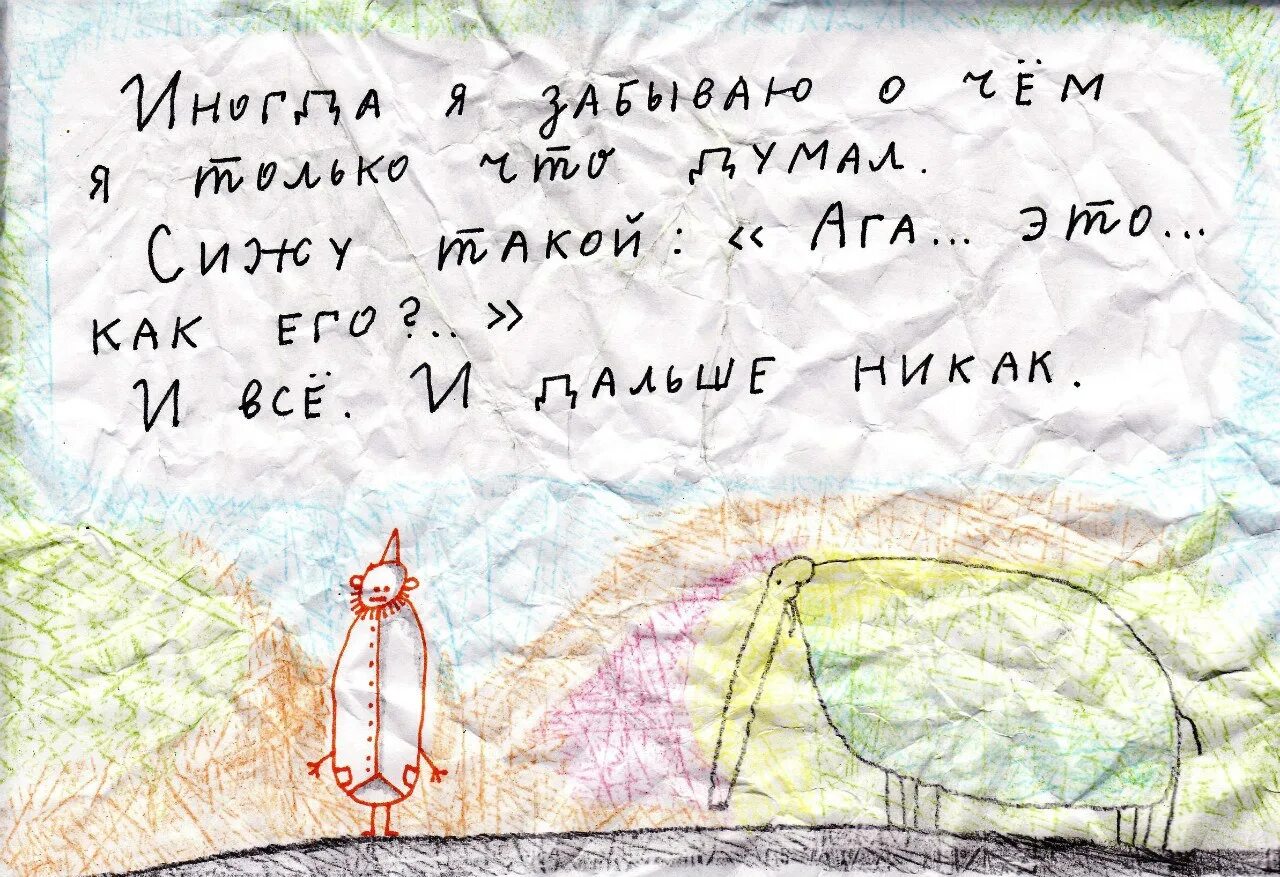 Иногда я забываю о чём
я только что думал.
Сижу такой: « Ага... это...
как его?.. »
И всё. И дальше никак.